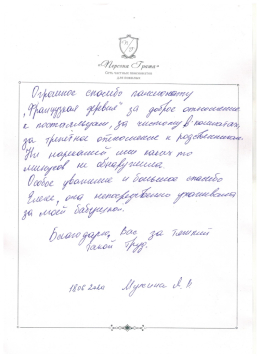 «Первая Гута»
Сеть частных пансионатов
для пожилых
Огромное спасибо пансионату
"Французская деревня" за доброе отношение
к постояльцам, за чистоту в комнатах,
за приятное отношение к родственникам.
Ни нареканий или каких то
минусов не обнаружила.
Особое уважение и большое спасибо
Елене, она непосредственно ухаживала
за моей бабушкой.
Благодарю Вас за тяжкий
такой труд.
Мухина А. Н